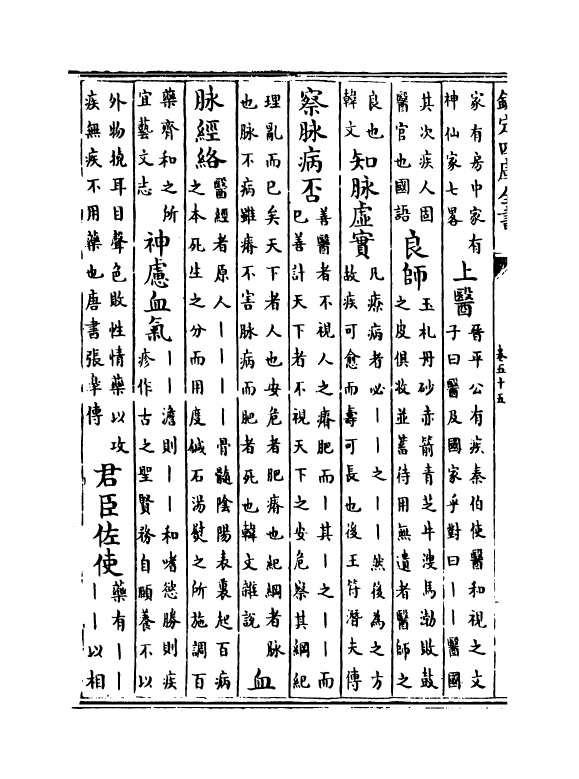 欽定四庫全書
卷五十五
家有房中家有
神仙家七畧
上醫
晉平公有疾秦伯使醫和視之文
子曰醫及國家乎對曰丨丨醫國
其次疾人固
醫官也國語
良師
玉札丹砂赤箭青芝牛溲馬渤敗鼓
之皮俱收並蓄待用無遺者醫師之
良也
韓文
知脉虛實
凡療病者必丨丨之丨丨然後為之方
故疾可愈而壽可長也後王符潜夫傳
察脉病否
善醫者不視人之瘠肥而丨其丨之丨丨而
已善計天下者不視天下之安危察其綱紀
理亂而已矣天下者人也安危者肥瘠也紀綱者脉
也脉不病雖瘠不害脉病而肥者死也韓文雜說
血
脉經絡
醫經者原人丨丨丨丨骨髓陰陽表裏起百病
之本死生之分而用度鍼石湯熨之所施調百
藥齊和之所
宜藝文志
神慮血氣
丨丨澹則丨丨和嗜慾勝則疾
疹作古之聖賢務自頤養不以
外物撓耳目聲色敗性情藥以攻
疾無疾不用藥也唐書張臯傳
君臣佐使
藥有丨丨
丨丨以相